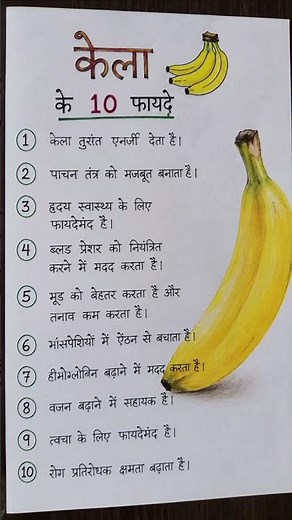 केला
के 10 फायदे
1 केला तुरंत एनर्जी देता है।
2 पाचन तंत्र को मजबूत बनाता है।
3 हृदय स्वास्थ्य के लिए
फायदेमंद है।
4 ब्लड प्रेशर को नियंत्रित
करने में मदद करता है।
5 मूड को बेहतर करता है और
तनाव कम करता है।
6 मांसपेशियों में ऐंठन से बचाता है।
7 हीमोग्लोबिन बढ़ाने में मदद करता है।
8 वजन बढ़ाने में सहायक है।
9 त्वचा के लिए फायदेमंद है।
10 रोग प्रतिरोधक क्षमता बढ़ाता है।